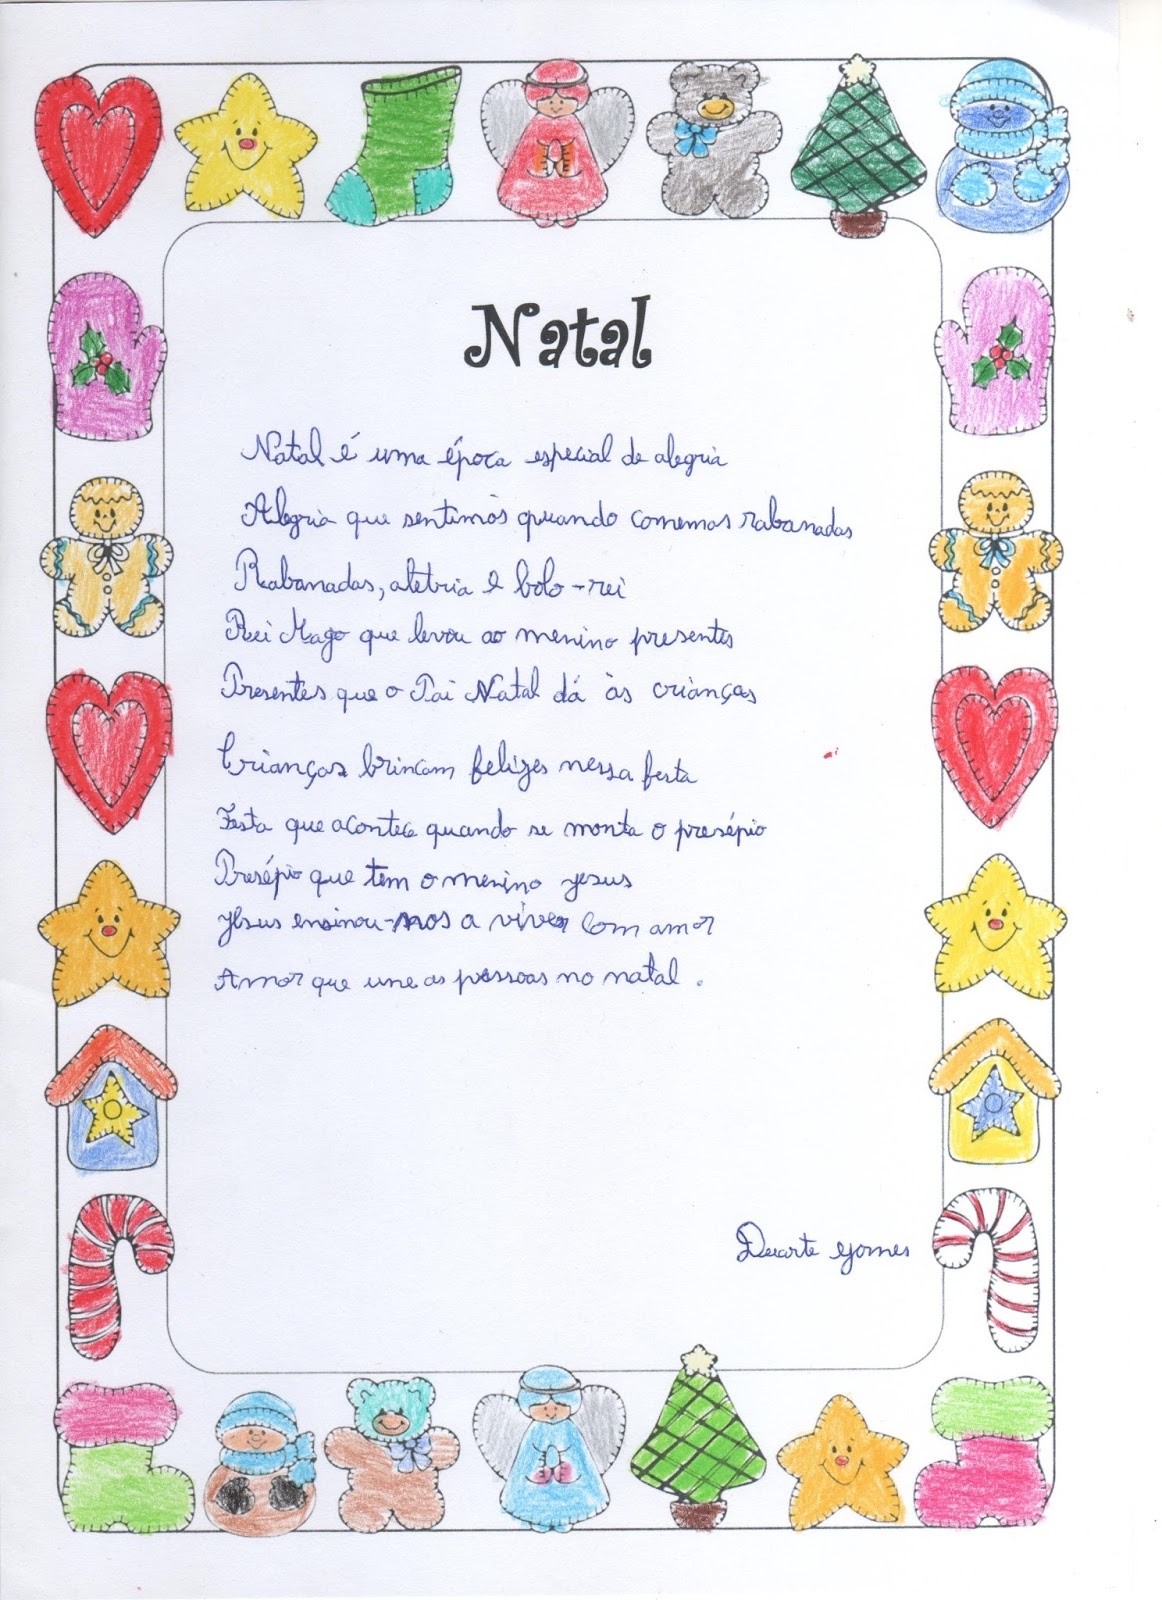 Natal
Natal é uma época especial de alegria
Alegria que sentimos quando comemos rabanadas
Rabanadas, aletria e bolo-rei
Rei Mago que levou ao menino presentes
Presentes que o Pai Natal dá às crianças
Crianças brincam felizes nessa festa
Festa que acontece quando se monta o presépio
Presépio que tem o menino jesus
Jesus ensinou-nos a viver com amor
Amor que une as pessoas no natal.
Duarte Gomes